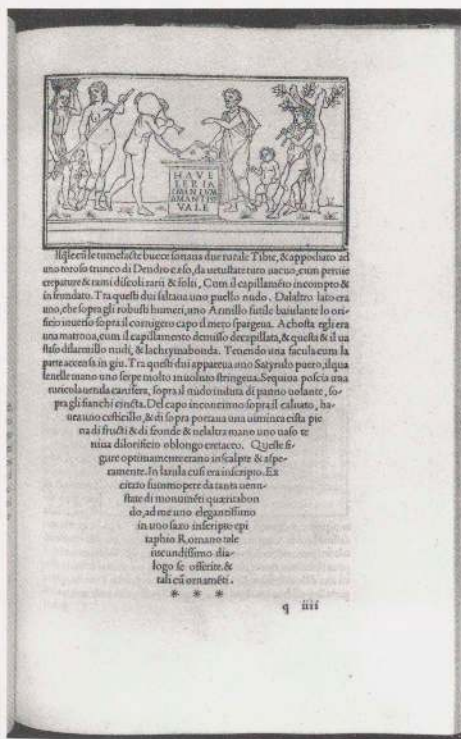 HAVE
LERIA
OMNIVM
AMANTISS
VALE
le tumefacte bucce sonaua due rurale Tibie, & appodiato ad
uno toroso trunco di Dendro exeso, da uetustate tuto uacuo, cum peruie
crepature & rami discoli rarii & folti, Cum il capillaméto incompto &
infrondato. Tra questi dui saltaua uno puello nudo. Dalaltro lato era
uno, che sopra gli robusti humeri, uno Armillo futile baiulante lo ori-
ficio inuerso sopra il cornigero capo il mero spargeua. Achosta egli era
una matrona, cum il capillamento demisso decapillata, & questa & il ua
staso dilarmillo nudi, & lachrymabonda. Tenendo una facula cum la
parte accensa in giu. Tra questi dui appareua uno Satyrulo puero, ilqua
lenelle mano uno serpe molto inuoluto stringeua. Sequiua poscia una
ruricola uetula canifera, sopra il nudo induta di panno uolante, so-
pra gli fianchi cincta. Del capo inconcinno sopra il caluato, ha-
uea uno cesticillo, & di sopra portaua una uiminea cista pie
na di fructi & di fronde & nelaltra mano uno uaso te
niua dilorificio oblongo cretaceo. Queste fi-
gure optimamente erano inscalpte & aspe-
ramente. In larula cusi era inscripto. Ex
citato summopere da tanta uenu-
state di monuméti quæritabon
do, ad me uno elegantissimo
in uno saxo inscripto epi
taphio Romano tale
iucundissimo dia-
logo se offerite. &
tali cū ornaméti.
* * *
q iiii